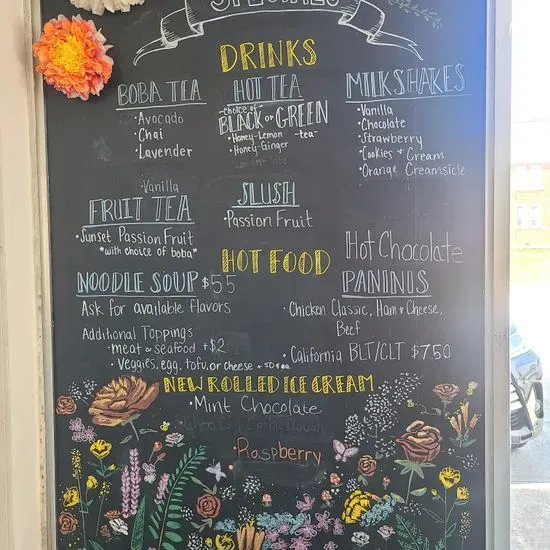 SPECIALS
DRINKS
BOBA TEA
• Avocado
• Chai
• Lavender
• Vanilla
HOT TEA
-choice of-
BLACK or GREEN
-tea-
• Honey-Lemon
• Honey-Ginger
MILKSHAKES
• Vanilla
• Chocolate
• Strawberry
• Cookies + Cream
• Orange Creamsicle
FRUIT TEA
• Sunset Passion Fruit
*with choice of boba*
SLUSH
• Passion Fruit
Hot Chocolate
HOT FOOD
NOODLE SOUP $5.5
Ask for available flavors
Additional Toppings
• meat or seafood +$2
• Veggies, egg, tofu, or cheese +50¢ ea.
PANINIS
• Chicken Classic, Ham + Cheese,
Beef
• California BLT/CLT $7.50
NEW ROLLED ICE CREAM
• Mint Chocolate
• Cookie Dough
• Raspberry